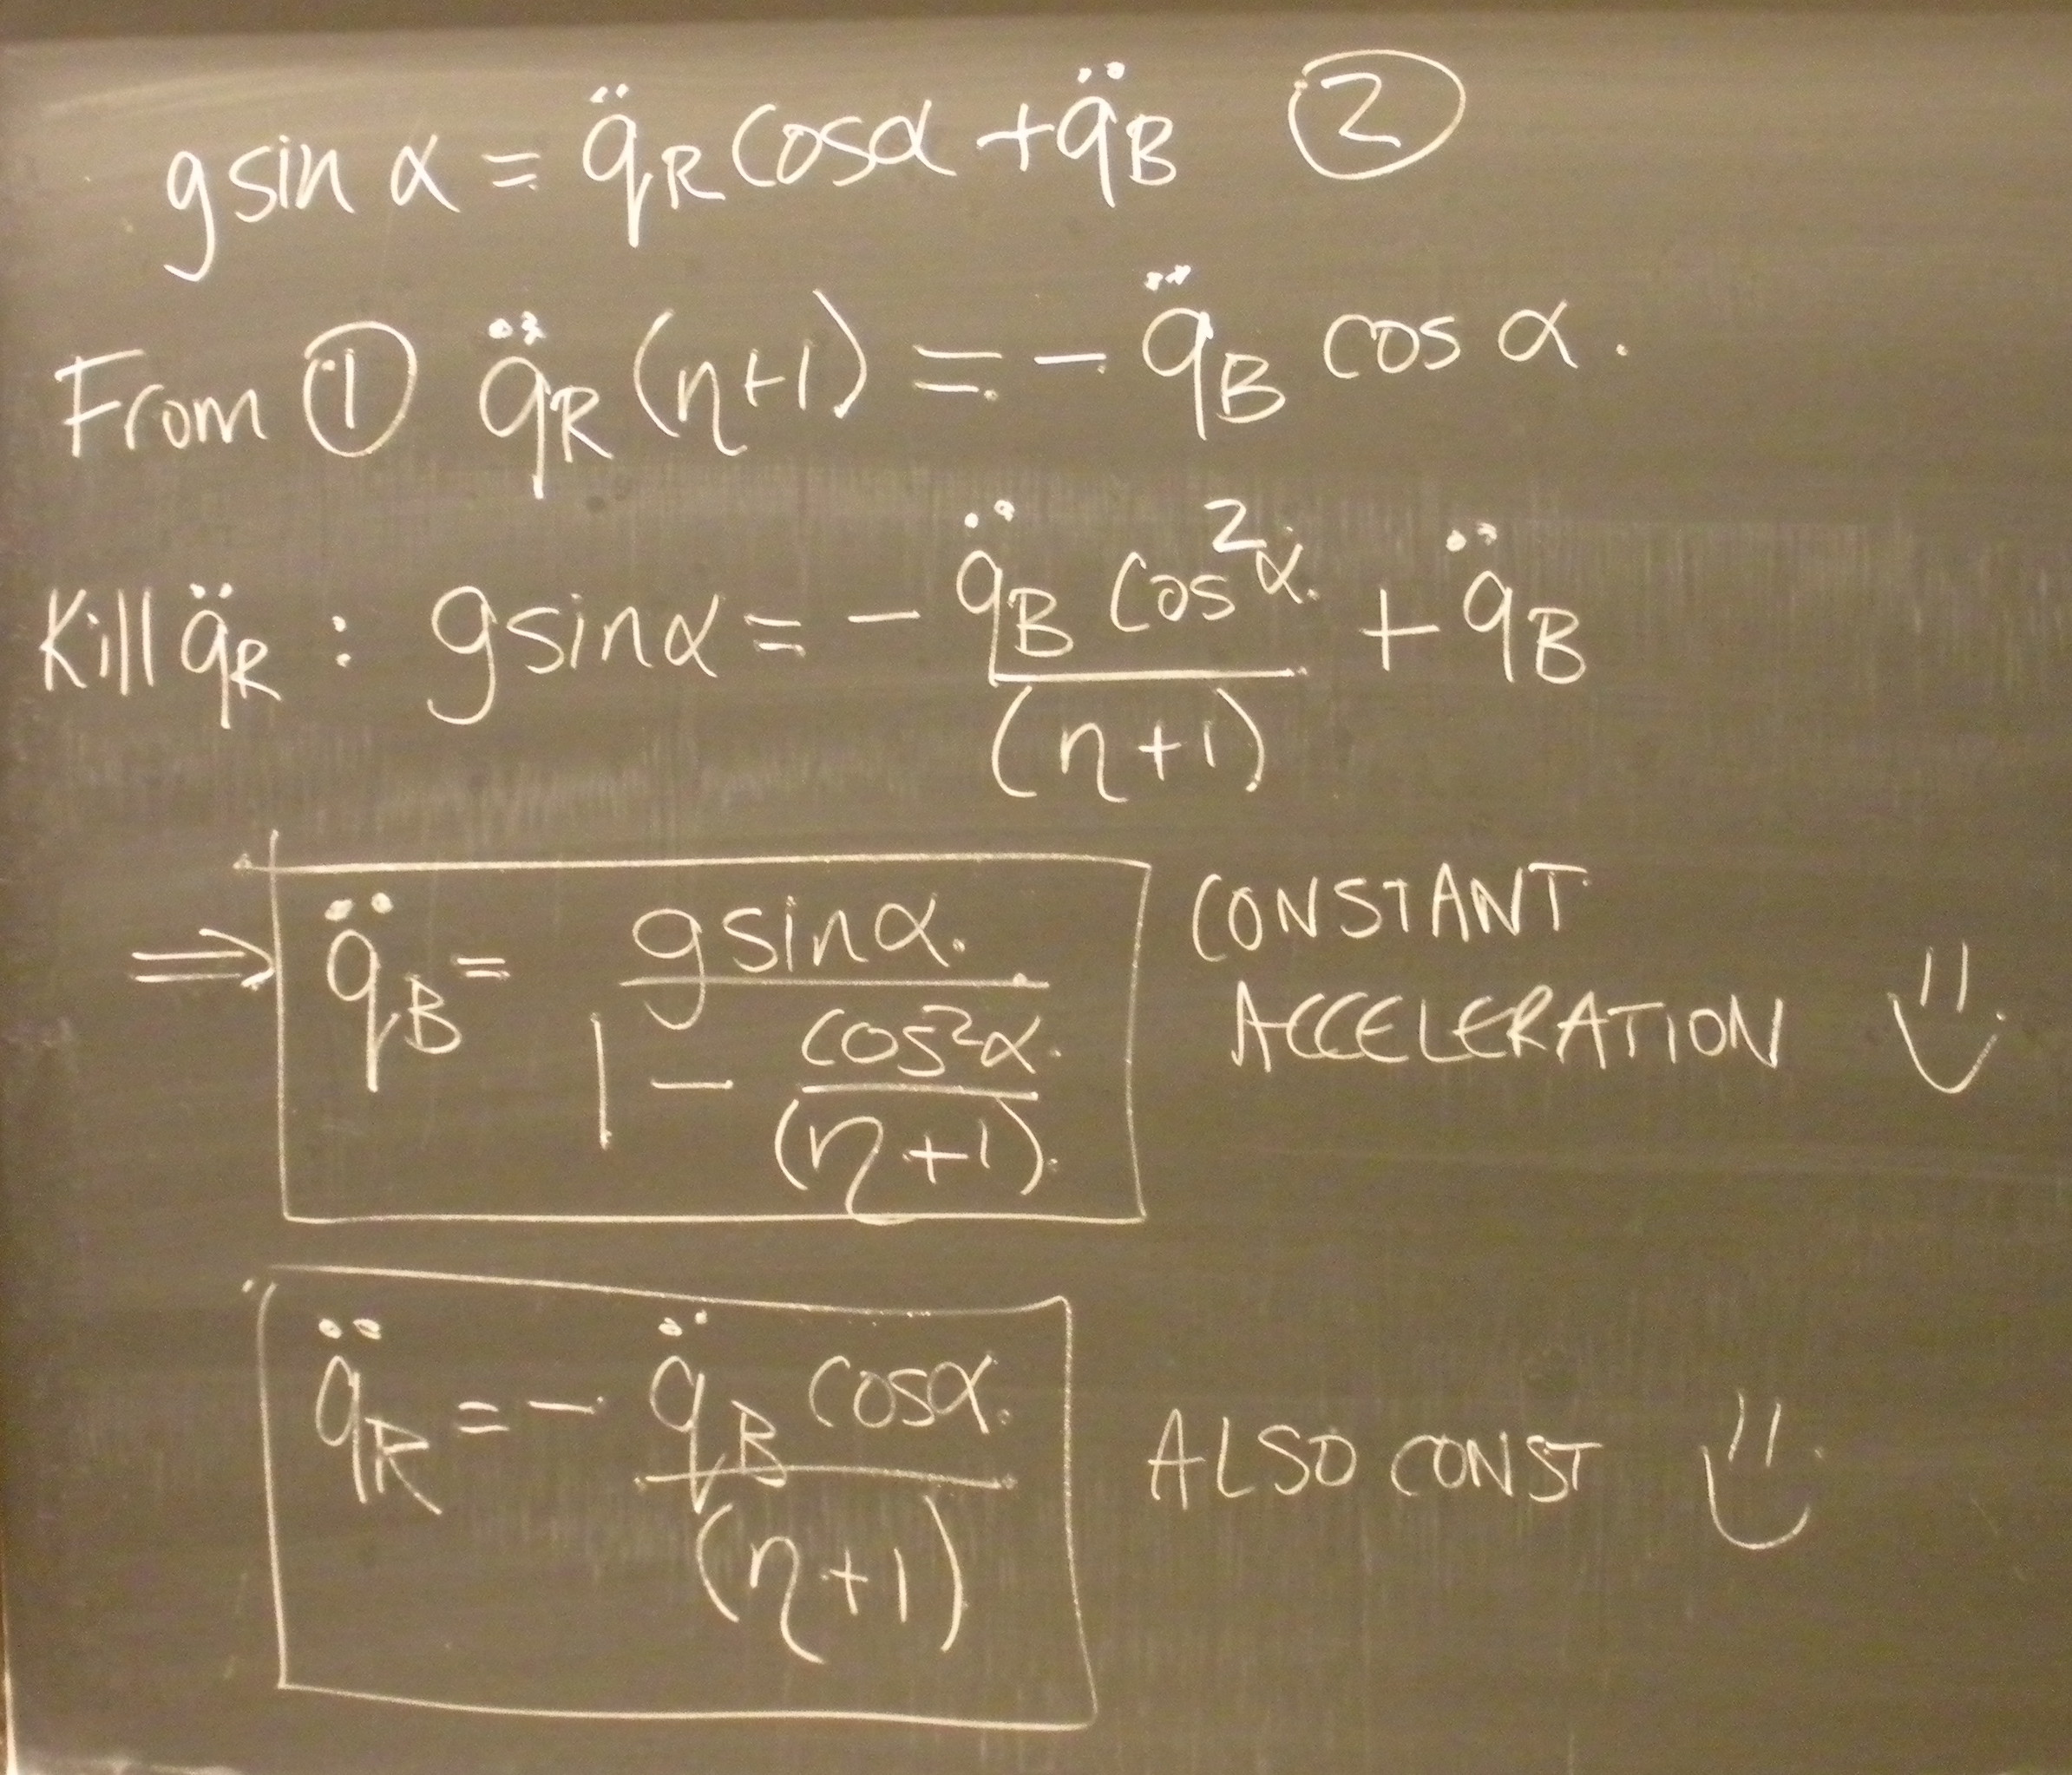 g sin α = q̈_R cos α + q̈_B ②
From ① q̈_R (η+1) = - q̈_B cos α.
Kill q̈_R : g sin α = - q̈_B cos²α / (η+1) + q̈_B
⇒ q̈_B = g sin α / (1 - cos²α / (η+1)) CONSTANT
ACCELERATION
q̈_R = - q̈_B cos α / (η+1) ALSO CONST